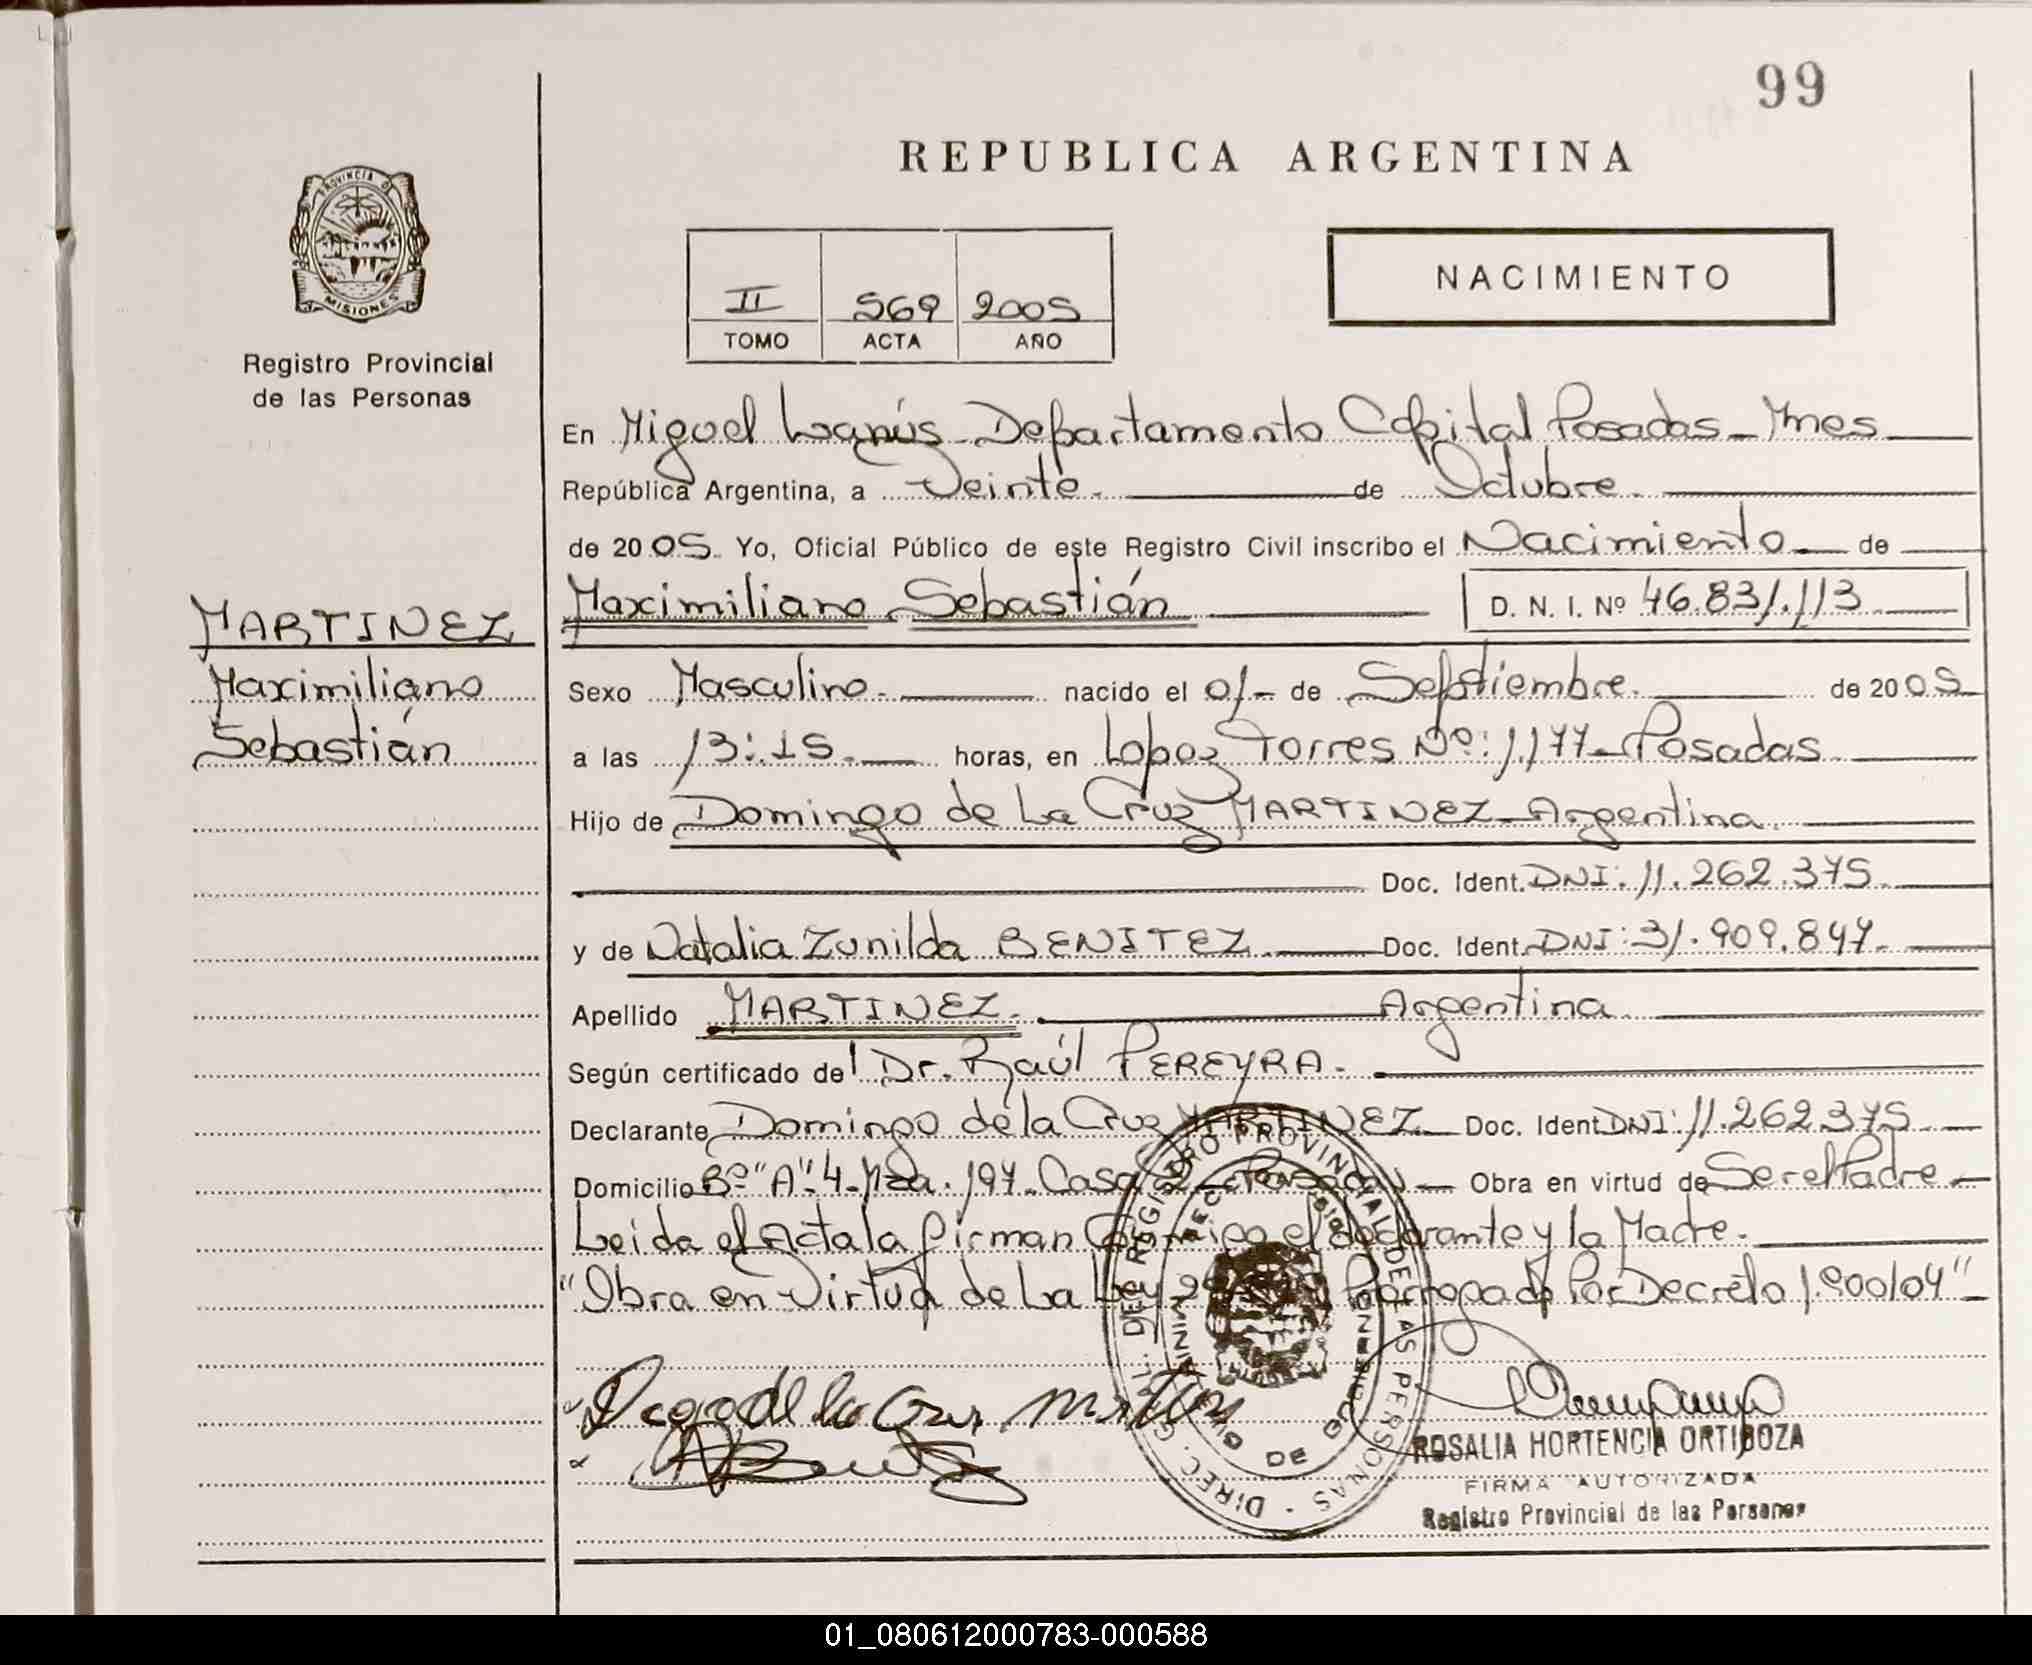 99
REPUBLICA ARGENTINA
PROVINCIA D
MISIONES
Registro Provincial
de las Personas
II 569 2005
TOMO ACTA AÑO
NACIMIENTO
En Miguel Lanús - Departamento Capital Posadas - Mnes
República Argentina, a Veinte. de Octubre.
de 2005. Yo, Oficial Público de este Registro Civil inscribo el Nacimiento de
Maximiliano Sebastián D. N. I. Nº 46.831.113
MARTINEZ
Maximiliano
Sebastián
Sexo Masculino. nacido el 01- de Septiembre. de 2005
a las 13:15. horas, en Lopez Torres Nº: 1.177 - Posadas
Hijo de Domingo de La Cruz MARTINEZ - Argentina.
Doc. Ident. DNI: 11.262.375
y de Natalia Zunilda BENITEZ. Doc. Ident. DNI: 31.909.847.
Apellido MARTINEZ. Argentina.
Según certificado del Dr. Raúl PEREYRA.
Declarante Domingo de la Cruz MARTINEZ Doc. Ident DNI: 11.262.375
Domicilio Bº "A" 4 - Mza. 197 - Casa Posadas Obra en virtud de Ser el Padre
Leida el Acta la firman Conmigo el declarante y la Madre.
"Obra en Virtud de La Ley Prorrogado Por Decreto 1.900/04"
DIREC. GRAL. DEL REGISTRO PROVINCIAL DE LAS PERSONAS
ROSALIA HORTENCIA ORTIBOZA
FIRMA AUTORIZADA
Registro Provincial de las Personas
01_080612000783-000588